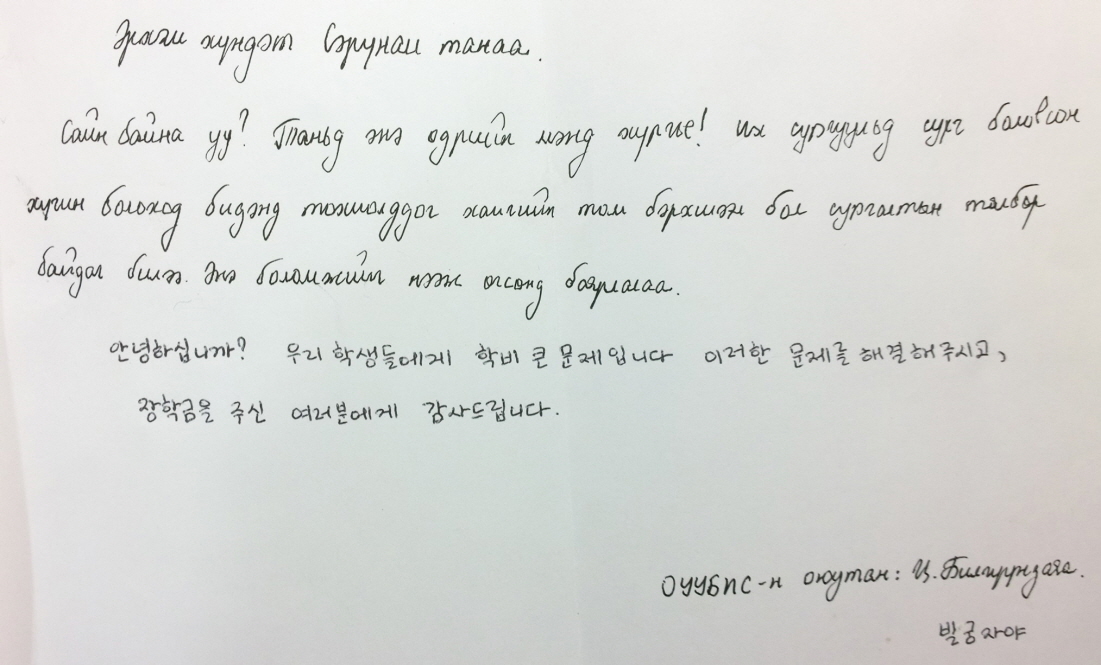 Эрхэм хүндэт Сэрунаи танаа.
Сайн байна уу? Таньд энэ өдрийн мэнд хүргье! Их сургуульд сурч боловсон
хүчин болоход бидэнд тохиолддог хамгийн том бэрхшээл бол сургалтын төлбөр
байдаг билээ. Энэ боломжийг нээж өгсөнд баярлалаа.
안녕하십니까? 우리 학생들에게 학비 큰 문제입니다 이러한 문제를 해결해주시고,
장학금을 주신 여러분에게 감사드립니다.
ОУУБПС-н оюутан: Ц. Билгүүнзаяа.
빌궁자야